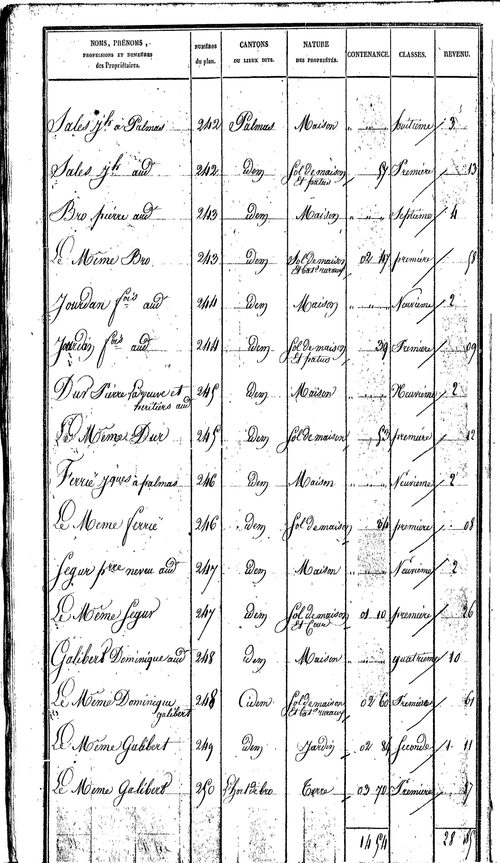 NOMS, PRÉNOMS,
PROFESSIONS ET DEMEURES
des Propriétaires.
NUMÉROS
du plan.
CANTONS
OU LIEUX DITS.
NATURE
DES PROPRIÉTÉS.
CONTENANCE.
CLASSES.
REVENU.
Sales jh à Palmas 242 Palmas Maison " " " huitième 3
Sales jh aud 242 idem Sol de maison et patus 57 Première 13
Bro pierre aud 243 idem Maison " " " Septième 4
Le Même Bro 243 idem Sol de maison et bat ruraux 02 47 première 58
Jourdan fois aud 244 idem Maison " " " Neuvième 2
Jourdan fois aud 244 idem Sol de maison et patus 39 Première 09
Dur Pierre la veuve et
heritiers aud 245 idem Maison Neuvième 2
Les Mêmes Dur 245 idem Sol de maison 53 première 12
Ferrié jques à palmas 246 idem Maison Neuvième 2
Le Meme ferrié 246 idem Sol de maison 34 première 08
Segur pre neveu aud 247 idem Maison Neuvième 2
Le Même Segur 247 idem Sol de maison et Cour 01 10 première 26
Galibert Dominique aud 248 idem Maison quatrième 10
Le Même Dominique
galibert 248 idem Sol de maison et bat ruraux 02 60 Première 61
Le Même Galibert 249 idem Jardin 02 84 Seconde 1 11
Le Même Galibert 250 l'hort de bro Terre 03 70 Première 87
14 54 28 85